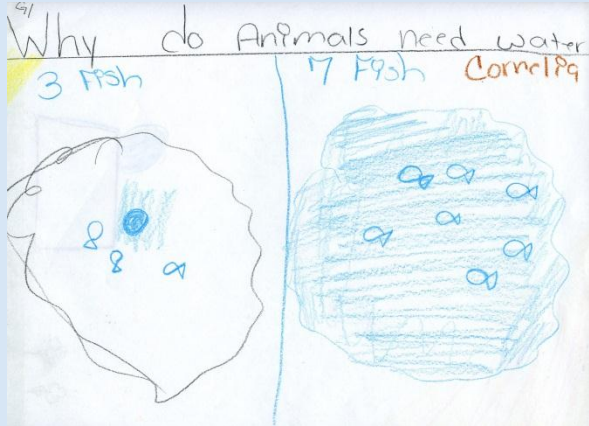 G1
Why do Animals need water
3 Fish 7 Fish Cornelia